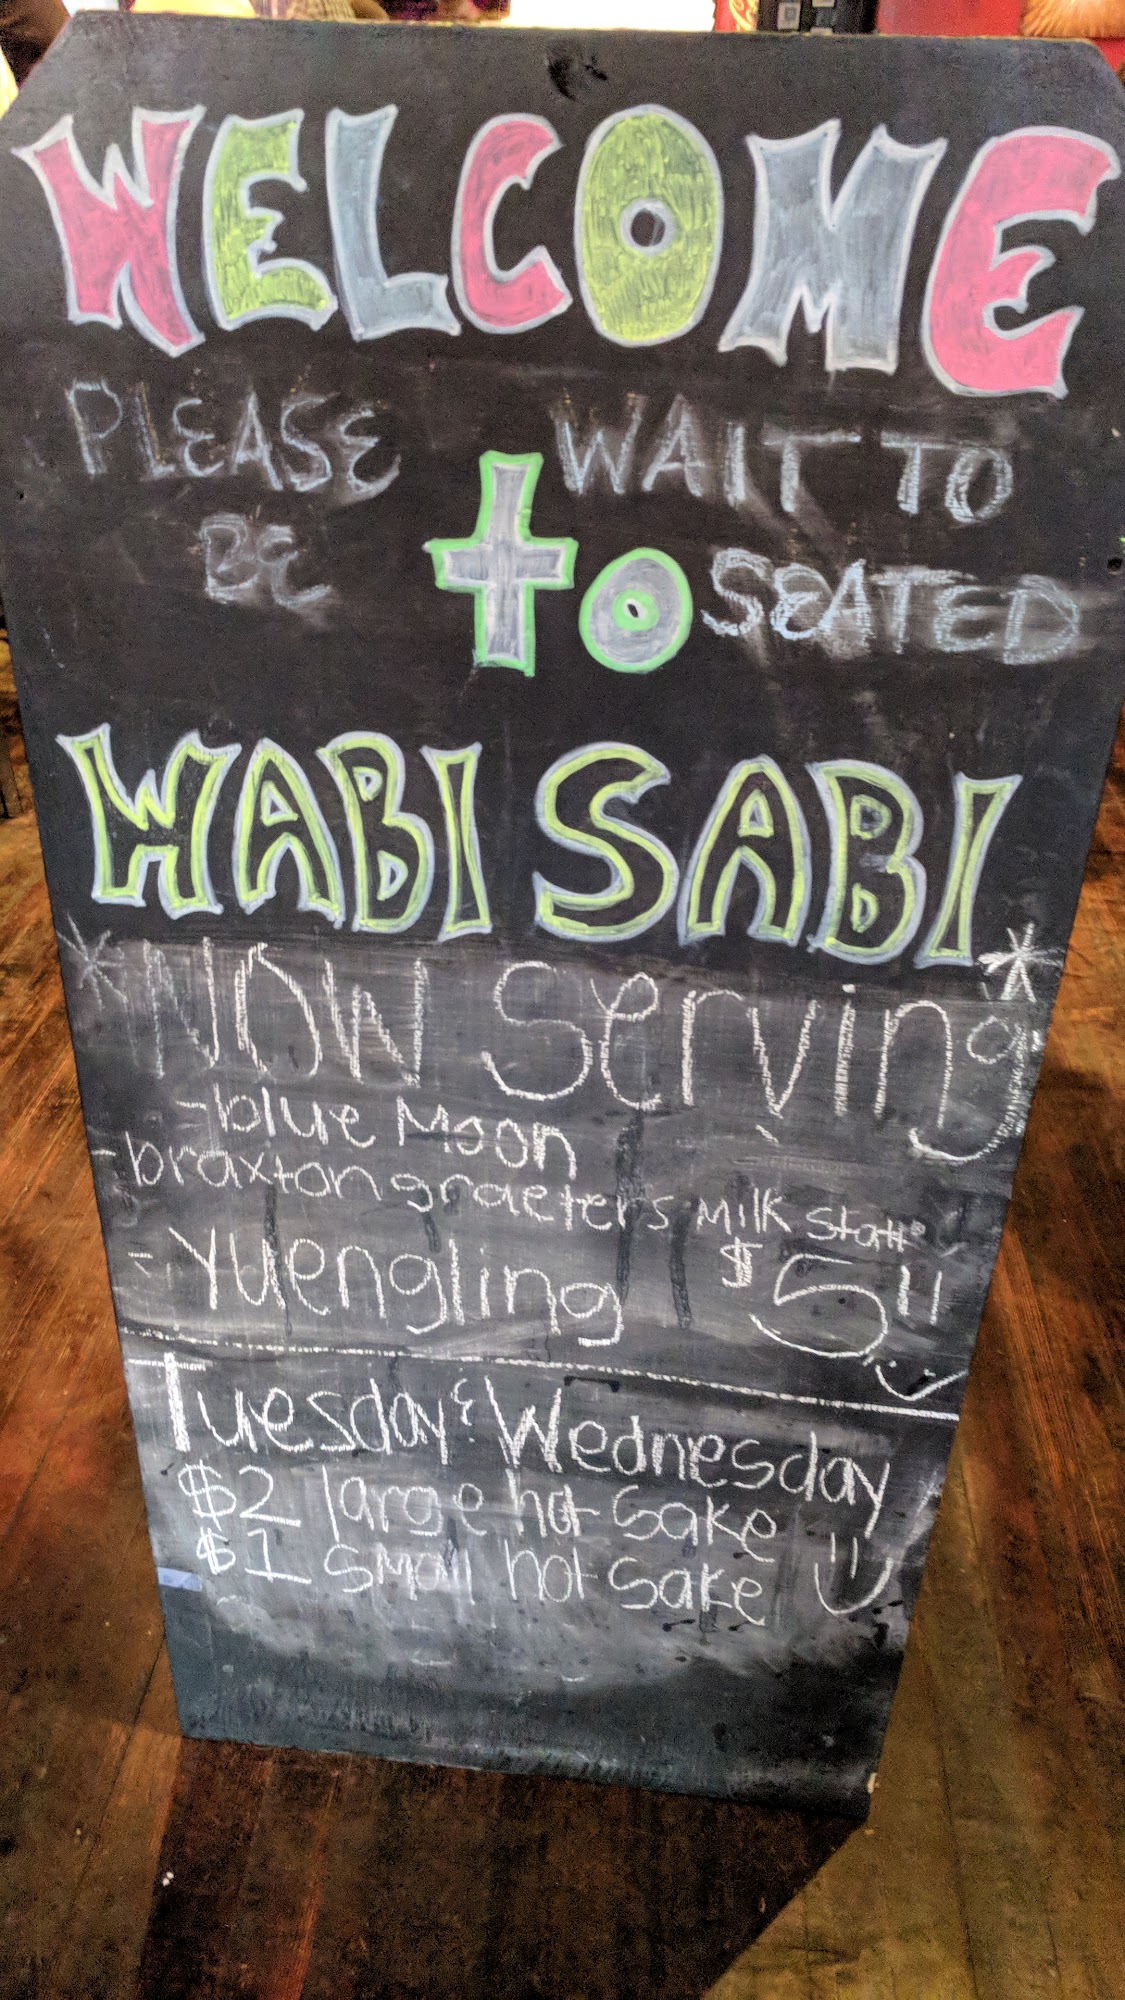 WELCOME
PLEASE WAIT TO
BE to SEATED
WABI SABI
*NOW Serving*
-blue Moon
-braxton graeters Milk
-Yuengling $5
Tuesday & Wednesday
$2 large hot sake
$1 small hot sake